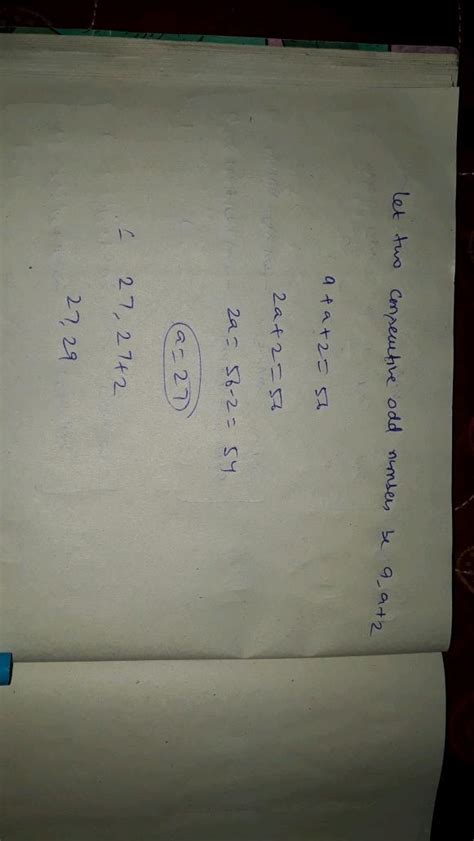 Let two consecutive odd numbers be a, a+2
a+a+2=56
2a+2=56
2a=56-2=54
a=27
∴ 27, 27+2
27, 29